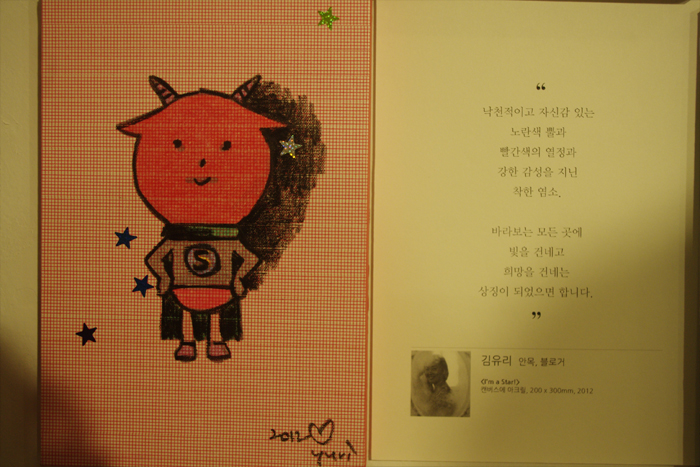 S
2012
yuri
“
낙천적이고 자신감 있는
노란색 뿔과
빨간색의 열정과
강한 감성을 지닌
착한 염소.
바라보는 모든 곳에
빛을 건네고
희망을 건네는
상징이 되었으면 합니다.
”
김유리 안목, 블로거
<I'm a Star!>
캔버스에 아크릴, 200 x 300mm, 2012